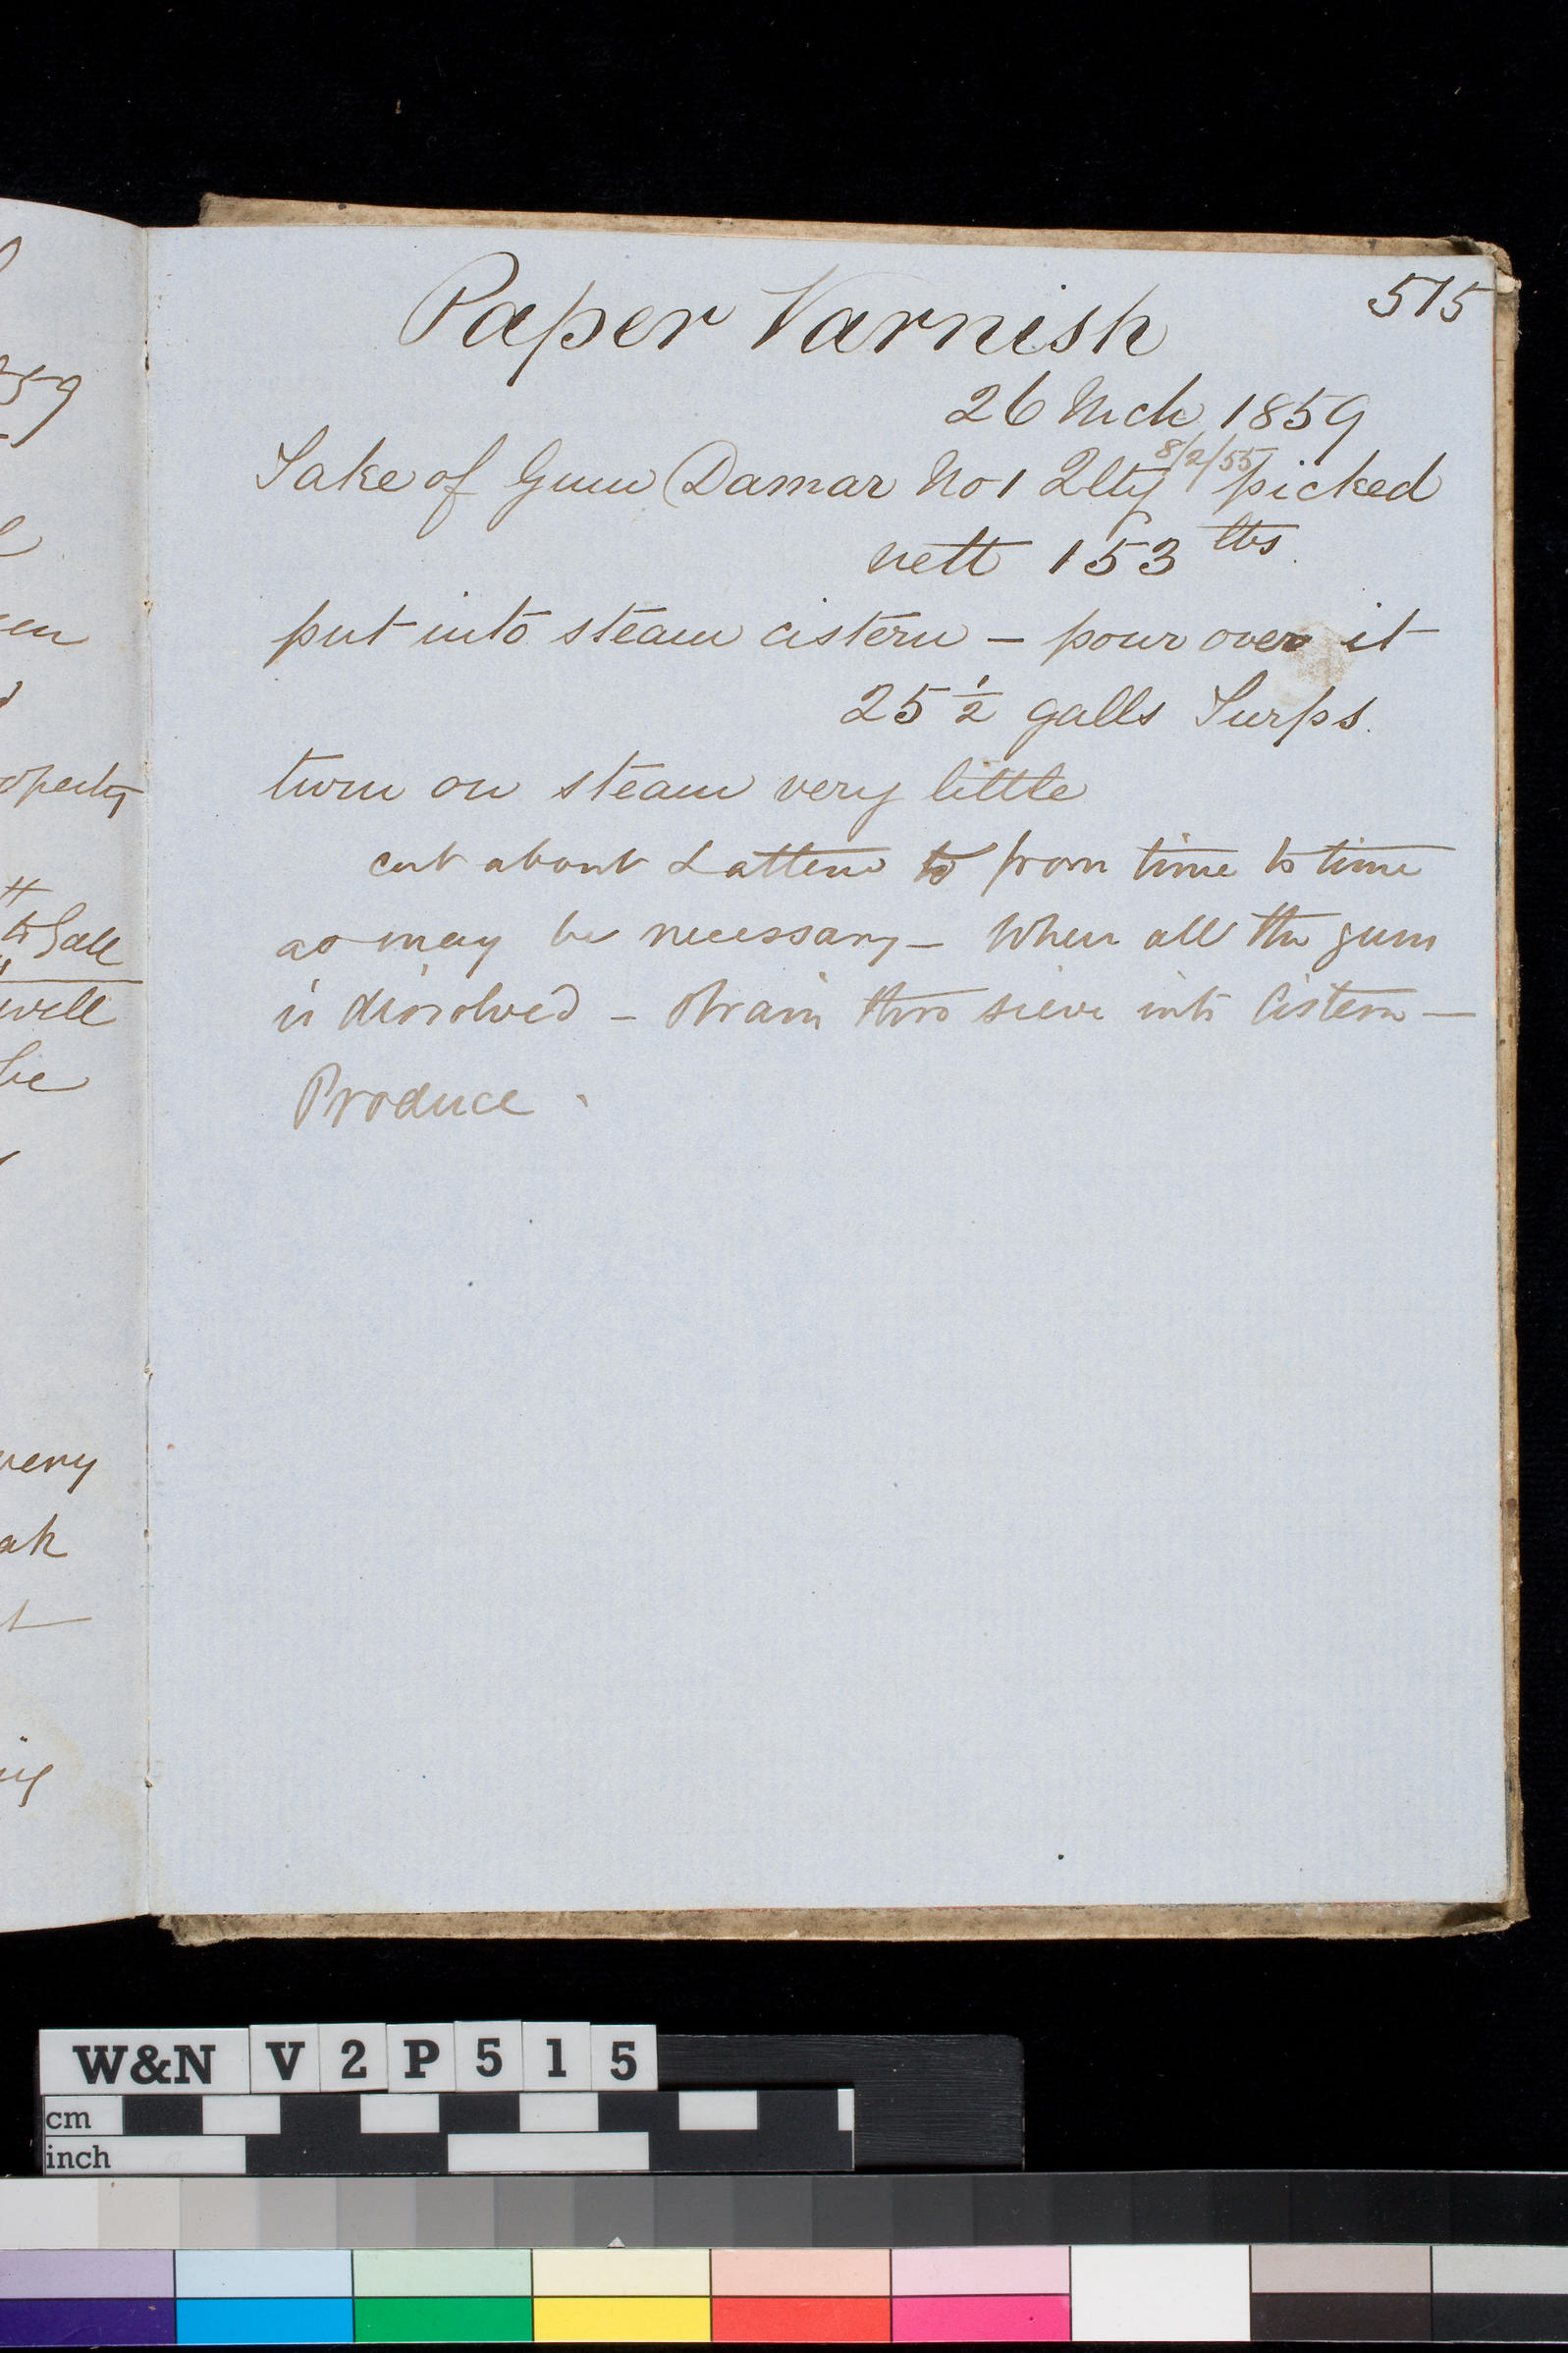 59
en
operly
to Gall
will
be
very
ak
Paper Varnish
515
26 Mch 1859
Take of Gum Damar No 1 Qlty 8/2/55 picked
nett 153 lbs
put into steam cistern — pour over it
25 1/2 galls Turps.
turn on steam very little
cut about & attend to from time to time
as may be necessary — When all the gum
is dissolved — strain thro sieve into Cistern —
Produce
W&N V2P515
cm
inch